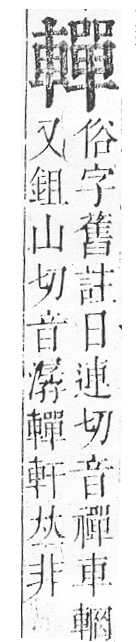 轏
俗字舊註日連切音禪車輞
又鉏山切音潺轏軒𠀤非